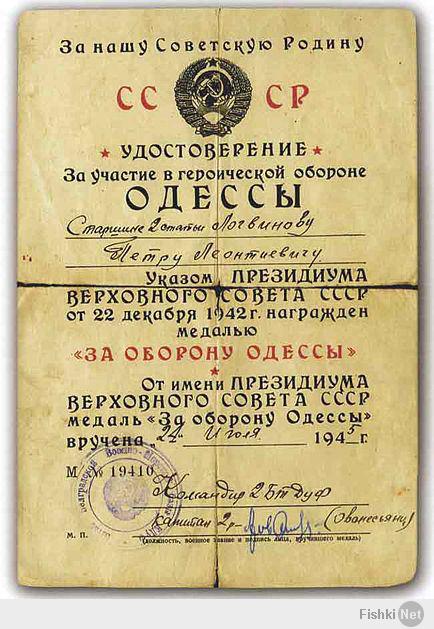 За нашу Советскую Родину
СС СР
УДОСТОВЕРЕНИЕ
За участие в героической обороне
ОДЕССЫ
Старшине 2 статьи Логвинову
Петру Леонтиевичу
Указом ПРЕЗИДИУМА
ВЕРХОВНОГО СОВЕТА СССР
от 22 декабря 1942 г. награжден
медалью
«ЗА ОБОРОНУ ОДЕССЫ»
От имени ПРЕЗИДИУМА
ВЕРХОВНОГО СОВЕТА СССР
медаль «За оборону Одессы»
вручена „24“ Июля 1945 г.
М № 19410
Командир 2 БТДУФ
капитан 2 р. (Ованесьянц)
М. П. (должность, военное звание и подпись лица, вручившего медаль)
Fishki.Net